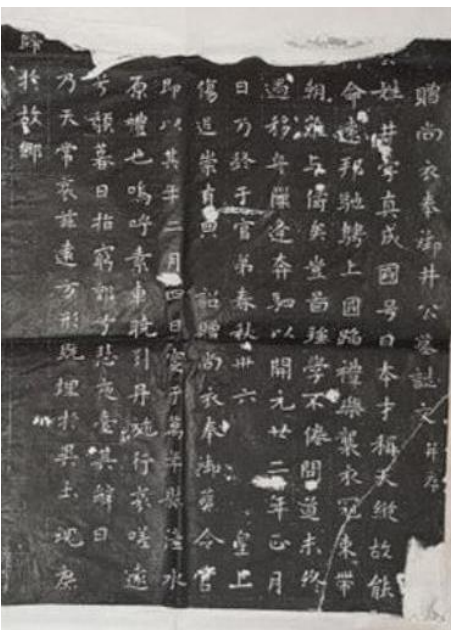 贈尚衣奉御井公墓誌文 并序
公姓井字真成國号日本才稱天縱故能
命遠邦馳騁上國蹈禮樂襲衣冠束帶
朝難与儔矣豈啚強學不倦問道未終
遇移舟隙逢奔駟以開元廿二年正月
日乃終于官弟春秋卅六 皇上
傷追崇有典 詔贈尚衣奉御葬令官
即以其年二月四日窆于萬年縣滻水
原禮也嗚呼素車曉引丹旐行哀嗟遠
兮頹暮日指窮郊兮悲夜臺其辭曰
乃天常哀茲遠方形既埋於異土魂庶
歸於故鄉